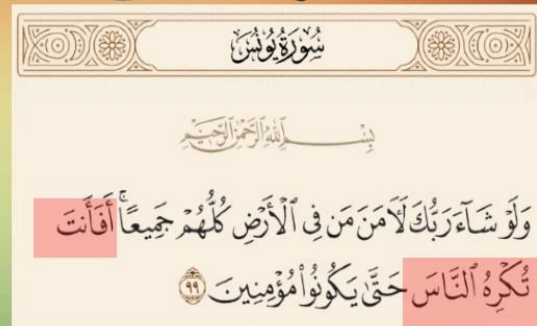 سُورَةُ يُونُسَ
بِسْمِ ٱللَّهِ ٱلرَّحْمَٰنِ ٱلرَّحِيمِ
وَلَوْ شَآءَ رَبُّكَ لَأٓمَنَ مَن فِى ٱلْأَرْضِ كُلُّهُمْ جَمِيعًاۚ أَفَأَنتَ
تُكْرِهُ ٱلنَّاسَ حَتَّىٰ يَكُونُوا۟ مُؤْمِنِينَ ٩٩